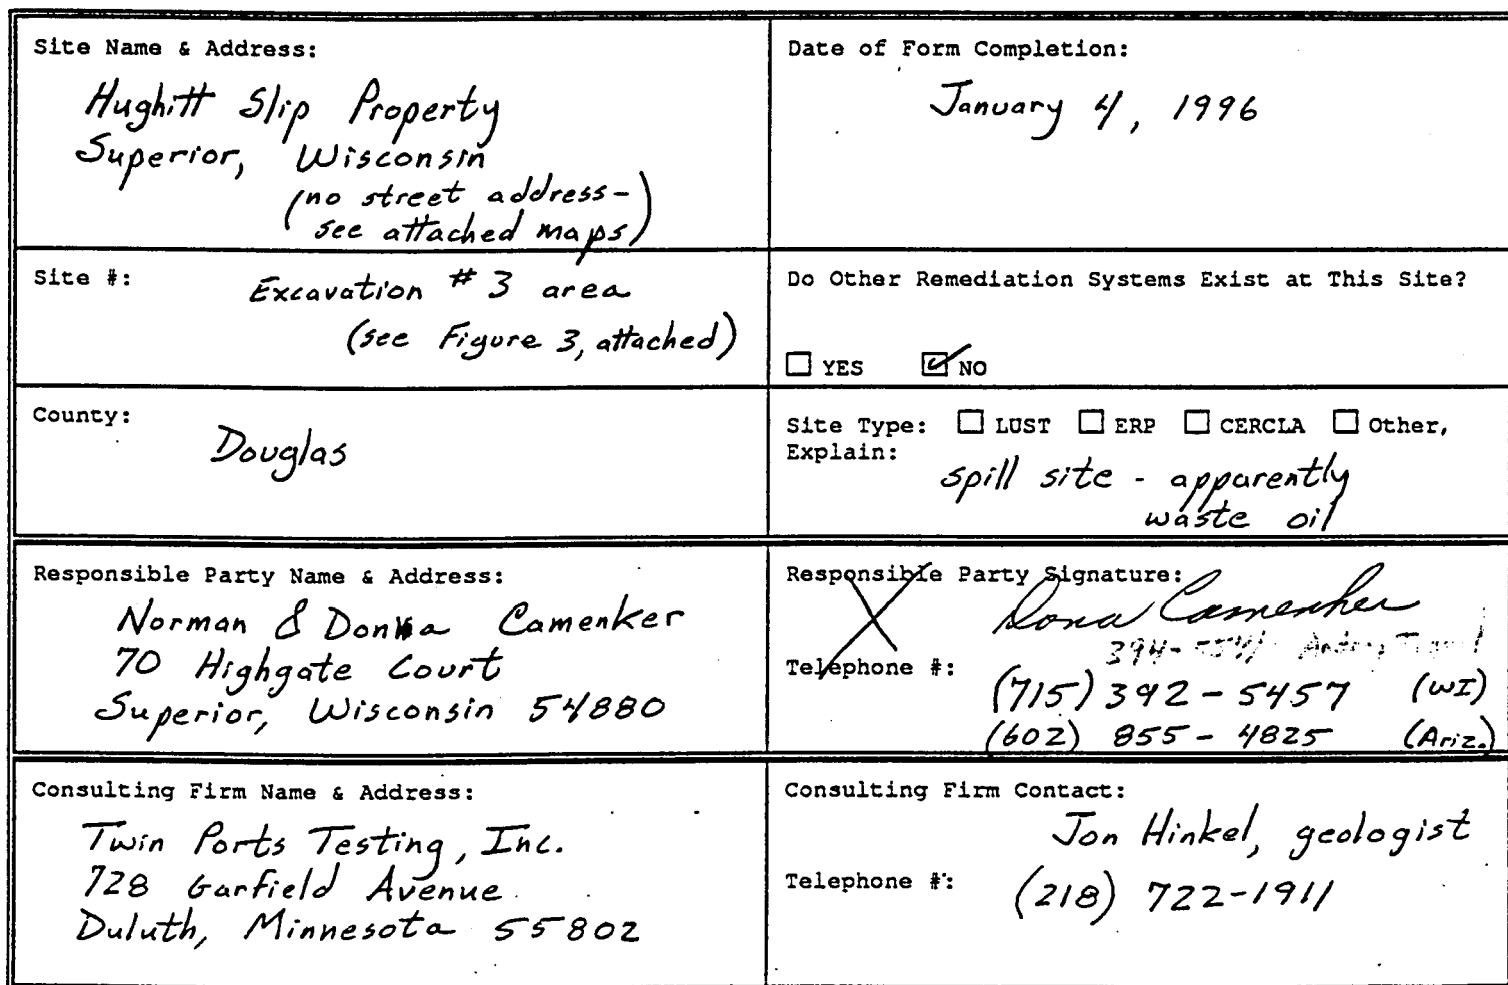 Site Name & Address:
Hughitt Slip Property
Superior, Wisconsin
(no street address-
see attached maps)
Date of Form Completion:
January 4, 1996
Site #: Excavation # 3 area
(see Figure 3, attached)
Do Other Remediation Systems Exist at This Site?
☐ YES ☑ NO
County:
Douglas
Site Type: ☐ LUST ☐ ERP ☐ CERCLA ☐ Other,
Explain:
spill site - apparently
waste oil
Responsible Party Name & Address:
Norman & Donna Camenker
70 Highgate Court
Superior, Wisconsin 54880
Responsible Party Signature:
Dona Camenker
394-
Telephone #:
(715) 392-5457 (WI)
(602) 855-4825 (Ariz.)
Consulting Firm Name & Address:
Twin Ports Testing, Inc.
728 Garfield Avenue
Duluth, Minnesota 55802
Consulting Firm Contact:
Jon Hinkel, geologist
Telephone #: (218) 722-1911